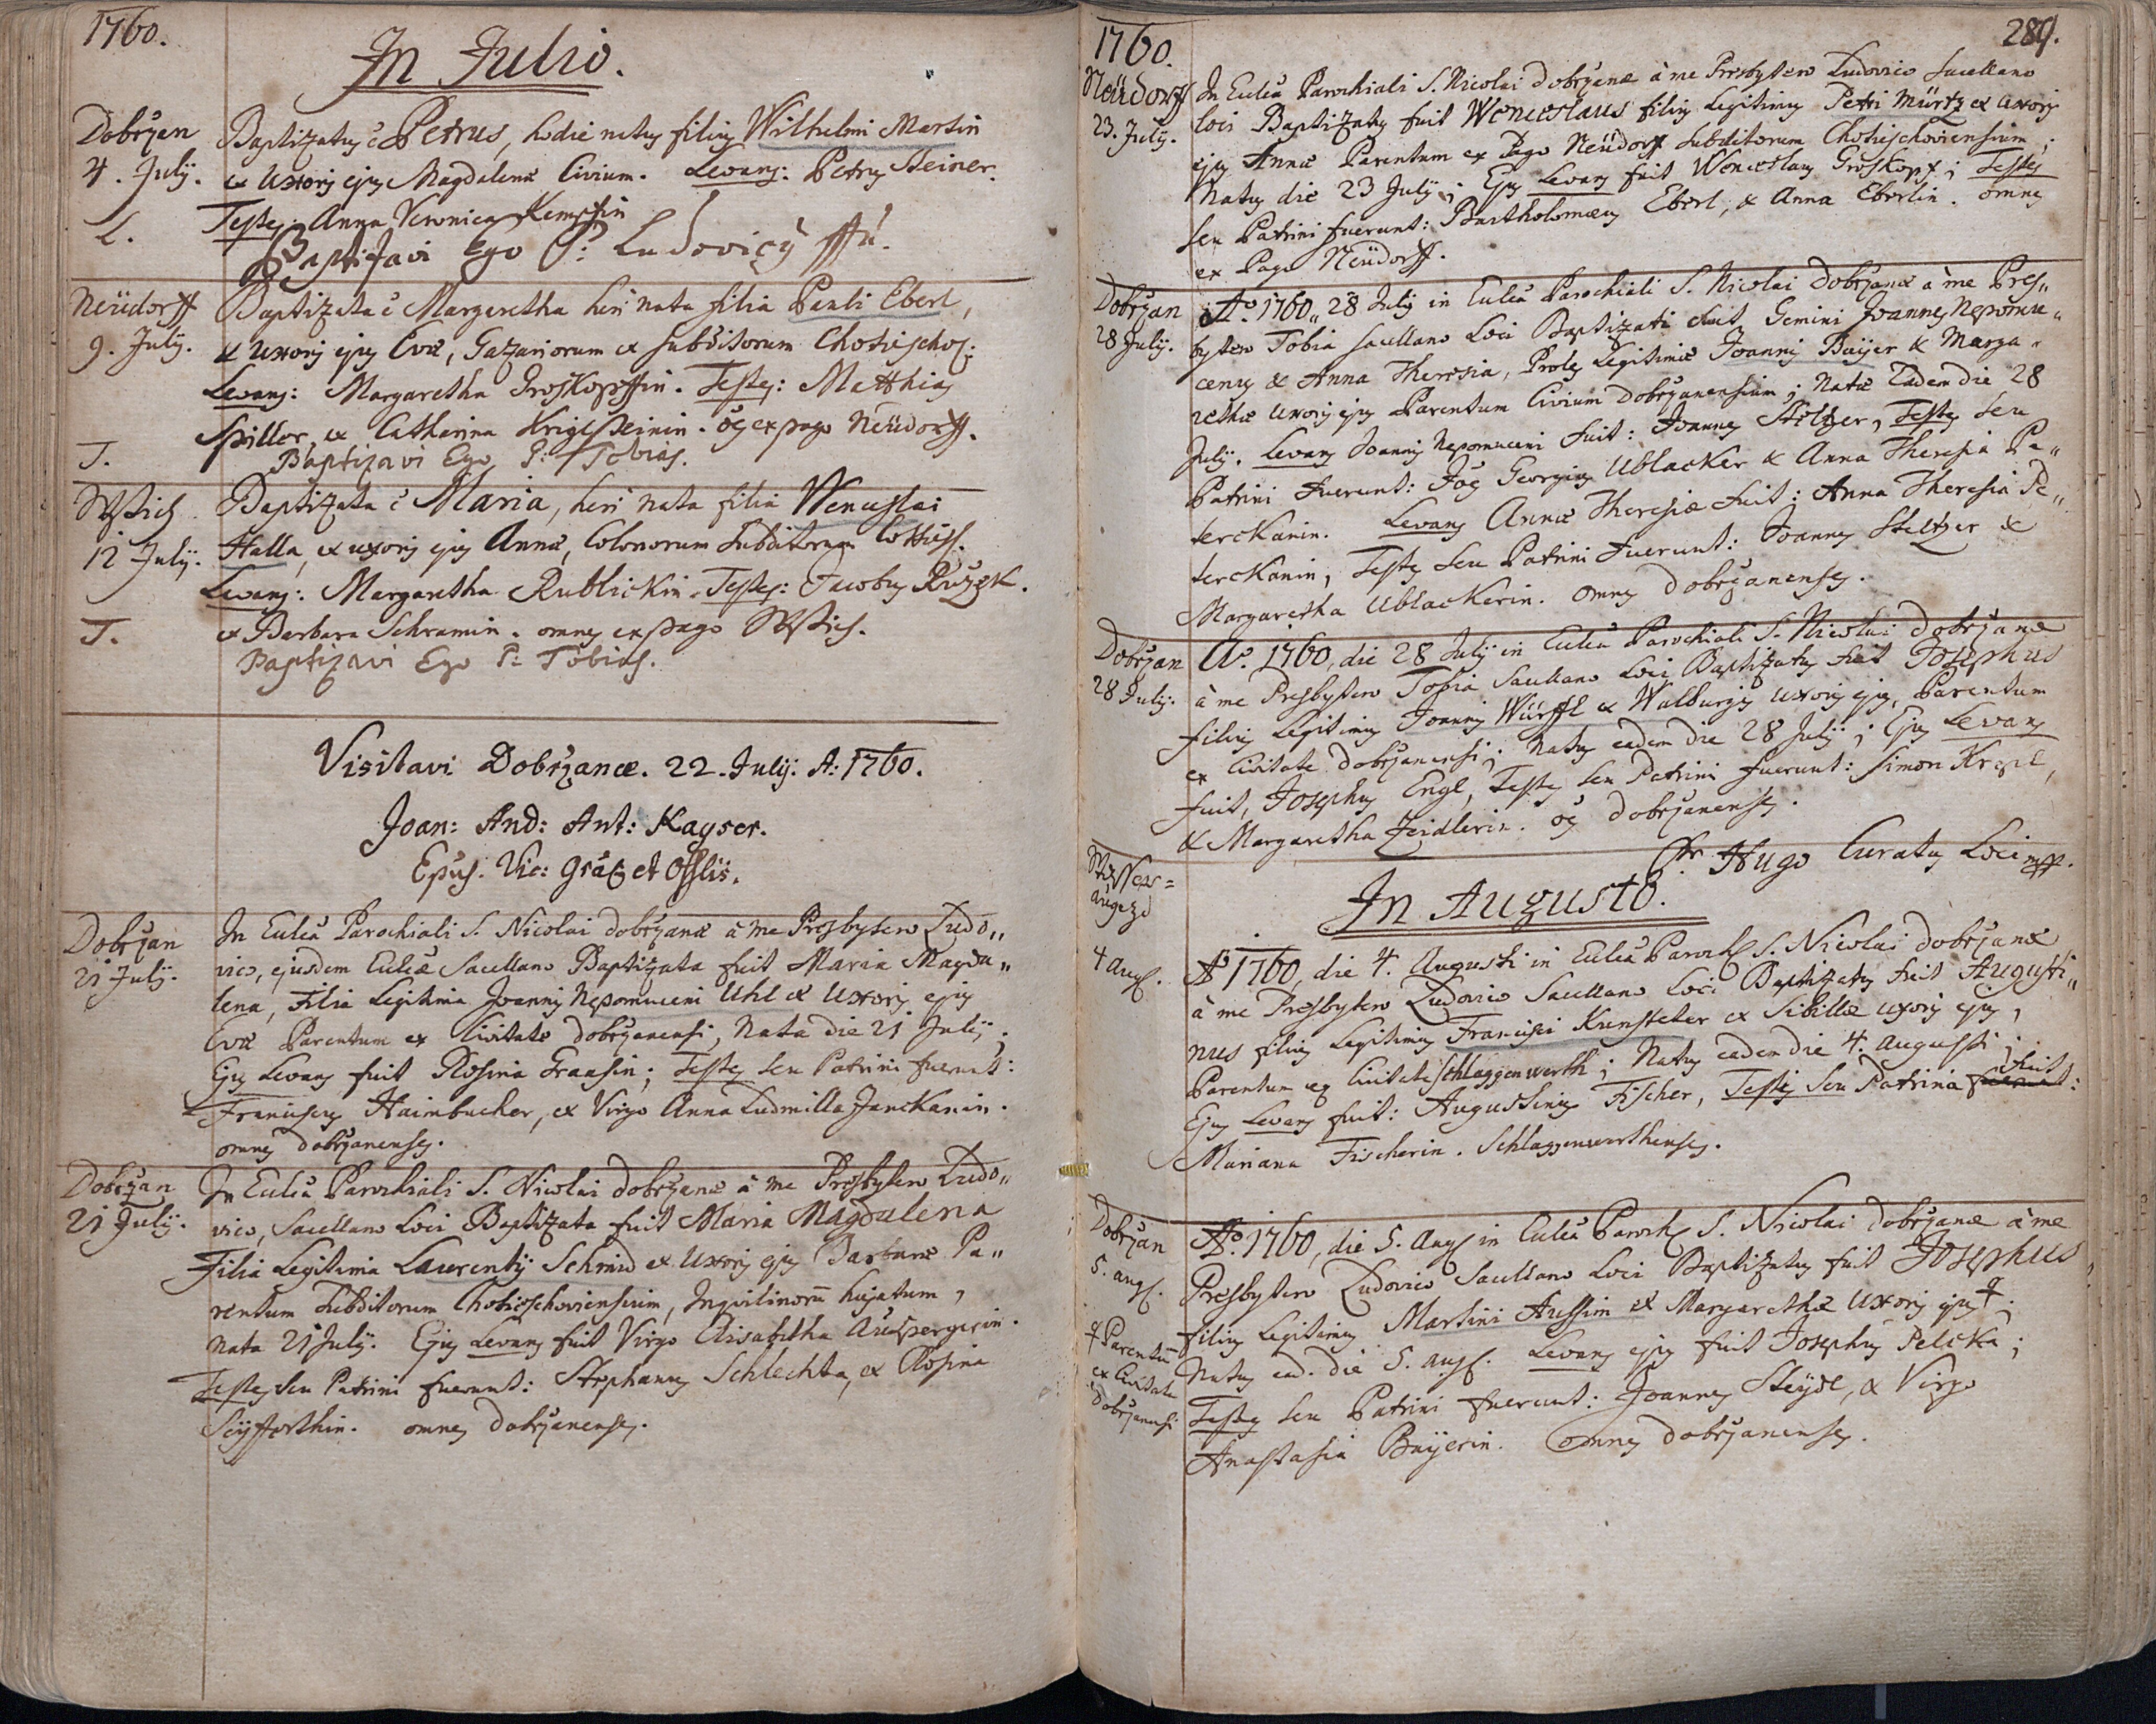 1760.
In Julio.
Dobrzan
4. July.
L.
Baptizatus ẽ Petrus, hodie natus filius Wilhelmi Martin
et Uxoris ejus Magdalenæ Civium. Levans: Petrus Steiner.
Testes: Anna Veronica Kempfin
Baptizavi Ego P: Ludovicus
Neüdorff
9. July.
T.
Baptizata ẽ Margaretha heri nata filia Pauli Eberl,
et Uxoris ejus Evæ, Gazariorum et subditorum Chotieschov:
Levans: Margaretha Groskopffin. Testes: Matthias
Spiller, et Catharina Kriglsteinin. oẽs ex pago Neüdorff.
Baptizavi Ego P: Tobias.
12 July.
T.
Baptizata ẽ Maria, heri nata filia Wenceslai
Halla, et uxoris ejus Annæ, Colonorum subditorum
Levans: Margaretha Rublickin. Testes: Jacobus
et Barbara Schramin. omnes ex pago
Baptizavi Ego P: Tobias.
Visitavi Dobrzanæ. 22. July. A: 1760.
Joan: And: Ant: Kayser.
Epus. Vic: Grãlis et Offlis.
Dobrzan
21 July.
In Ecclia Parochiali S. Nicolai Dobrzanæ à me Presbytero Ludo„
vico, ejusdem Eccliæ Sacellano Baptizata fuit Maria Magda„
lena, Filia Legitima Joannis Nepomuceni Uhl et Uxoris ejus
Evæ Parentum ex Civitate Dobrzanensi, Nata die 21 July;
Ejus Levans fuit Rosina Fransin; Testes seu Patrini fuerunt:
Franciscus Haimbucher, et Virgo Anna Ludmilla Janckanin.
omnes Dobrzanenses.
Dobrzan
21 July.
In Ecclia Parochiali S. Nicolai Dobrzanæ à me Presbytero Ludo„
vico, Sacellano Loci Baptizata fuit Maria Magdalena
Filia Legitima Laurentij Schmid et Uxoris ejus Barbaræ Pa„
rentum Subditorum Chotieschoviensium, Inquilinorũ hujatum,
Nata 21 July. Ejus Levans fuit Virgo Elisabetha Auspergerin.
Testes seu Patrini fuerunt: Stephanus Schlechta, et Rosina
Seyfferthin. omnes Dobrzanenses.
1760.
289.
Neüdorff
23. July.
In Ecclia Parochiali S. Nicolai Dobrzanæ à me Presbytero Ludovico Sacellano
loci Baptizatus fuit Wenceslaus filius Legitimus Petri Mürtz et uxoris
ejus Annæ Parentum ex Pago Neüdorff Subditorum Chotieschoviensium;
Natus die 23 July; Ejus Levans fuit Wenceslaus Groskopf; Testes
seu Patrini fuerunt: Bartholomæus Eberl, & Anna Eberlin. omnes
ex Pago Neüdorff.
Dobrzan
28 July.
Ao. 1760„ 28 July in Ecclia Parochiali S. Nicolai Dobrzanæ à me Pres„
bytero Tobia Sacellano Loci Baptizati sunt Gemini Joannes Nepomu„
cenus & Anna Theresia, Proles Legitimæ Joannis Baijer & Marga„
rethæ Uxoris ejus Parentum Civium Dobrzanensium; Natæ Eadem die 28
July. Levans Joannis Nepomuceni fuit: Joannes Steltzer, Testes seu
Patrini fuerunt: Joẽs Georgius Ublacker & Anna Theresia Pe„
terckanin. Levans Annæ Theresiæ fuit: Anna Theresia Pe„
terckanin, Testes seu Patrini fuerunt: Joannes Steltzer &
Margaretha Ublackerin. omnes Dobrzanenses.
Dobrzan
28 July.
Ao. 1760, die 28 July in Ecclia Parochiali S. Nicolai Dobrzanæ
à me Presbytero Tobia Sacellano Loci Baptizatus fuit Josephus
filius Legitimus Joannis Würffl & Walburgis uxoris ejus, Parentum
ex Civitate Dobrzanensi; Natus eadem die 28 July; Ejus Levans
fuit, Josephus Engl, Testes seu Patrini fuerunt: Simon
& Margaretha Zeidlerin. oẽs Dobrzanenses.
Fr. Hugo Curatus Loci mp.
In Augusto.
4 aug.
Ao 1760, die 4. Augusti in Ecclia Paroch. S. Nicolai Dobrzanæ
à me Presbytero Ludovico Sacellano Loci Baptizatus fuit Augusti„
nus filius Legitimus Francisci Kunstater et Sibillæ uxoris ejus,
Parentum ex Civitate Schlaggenwerth; Natus eadem die 4. Augusti;
Ejus Levans fuit: Augustinus Fischer, Testis seu Patrina fuerunt fuit:
Mariana Fischerin. Schlaggenwerthenses.
Dobrzan
5. aug.
Ao. 1760, die 5. Aug. in Ecclia Paroch. S. Nicolai Dobrzanæ à me
Presbytero Ludovico Sacellano Loci Baptizatus fuit Josephus
filius Legitimus Martini Aussim et Margarethæ Uxoris ejus ‡.
Natus ead. die 5. aug. Levans ejus fuit Josephus Pelcka;
Testes seu Patrini fuerunt: Joannes Steydl, & Virgo
Anastasia Baijerin. Omnes Dobrzanenses.
‡ Parentũ
ex Civitate
Dobrzanensi